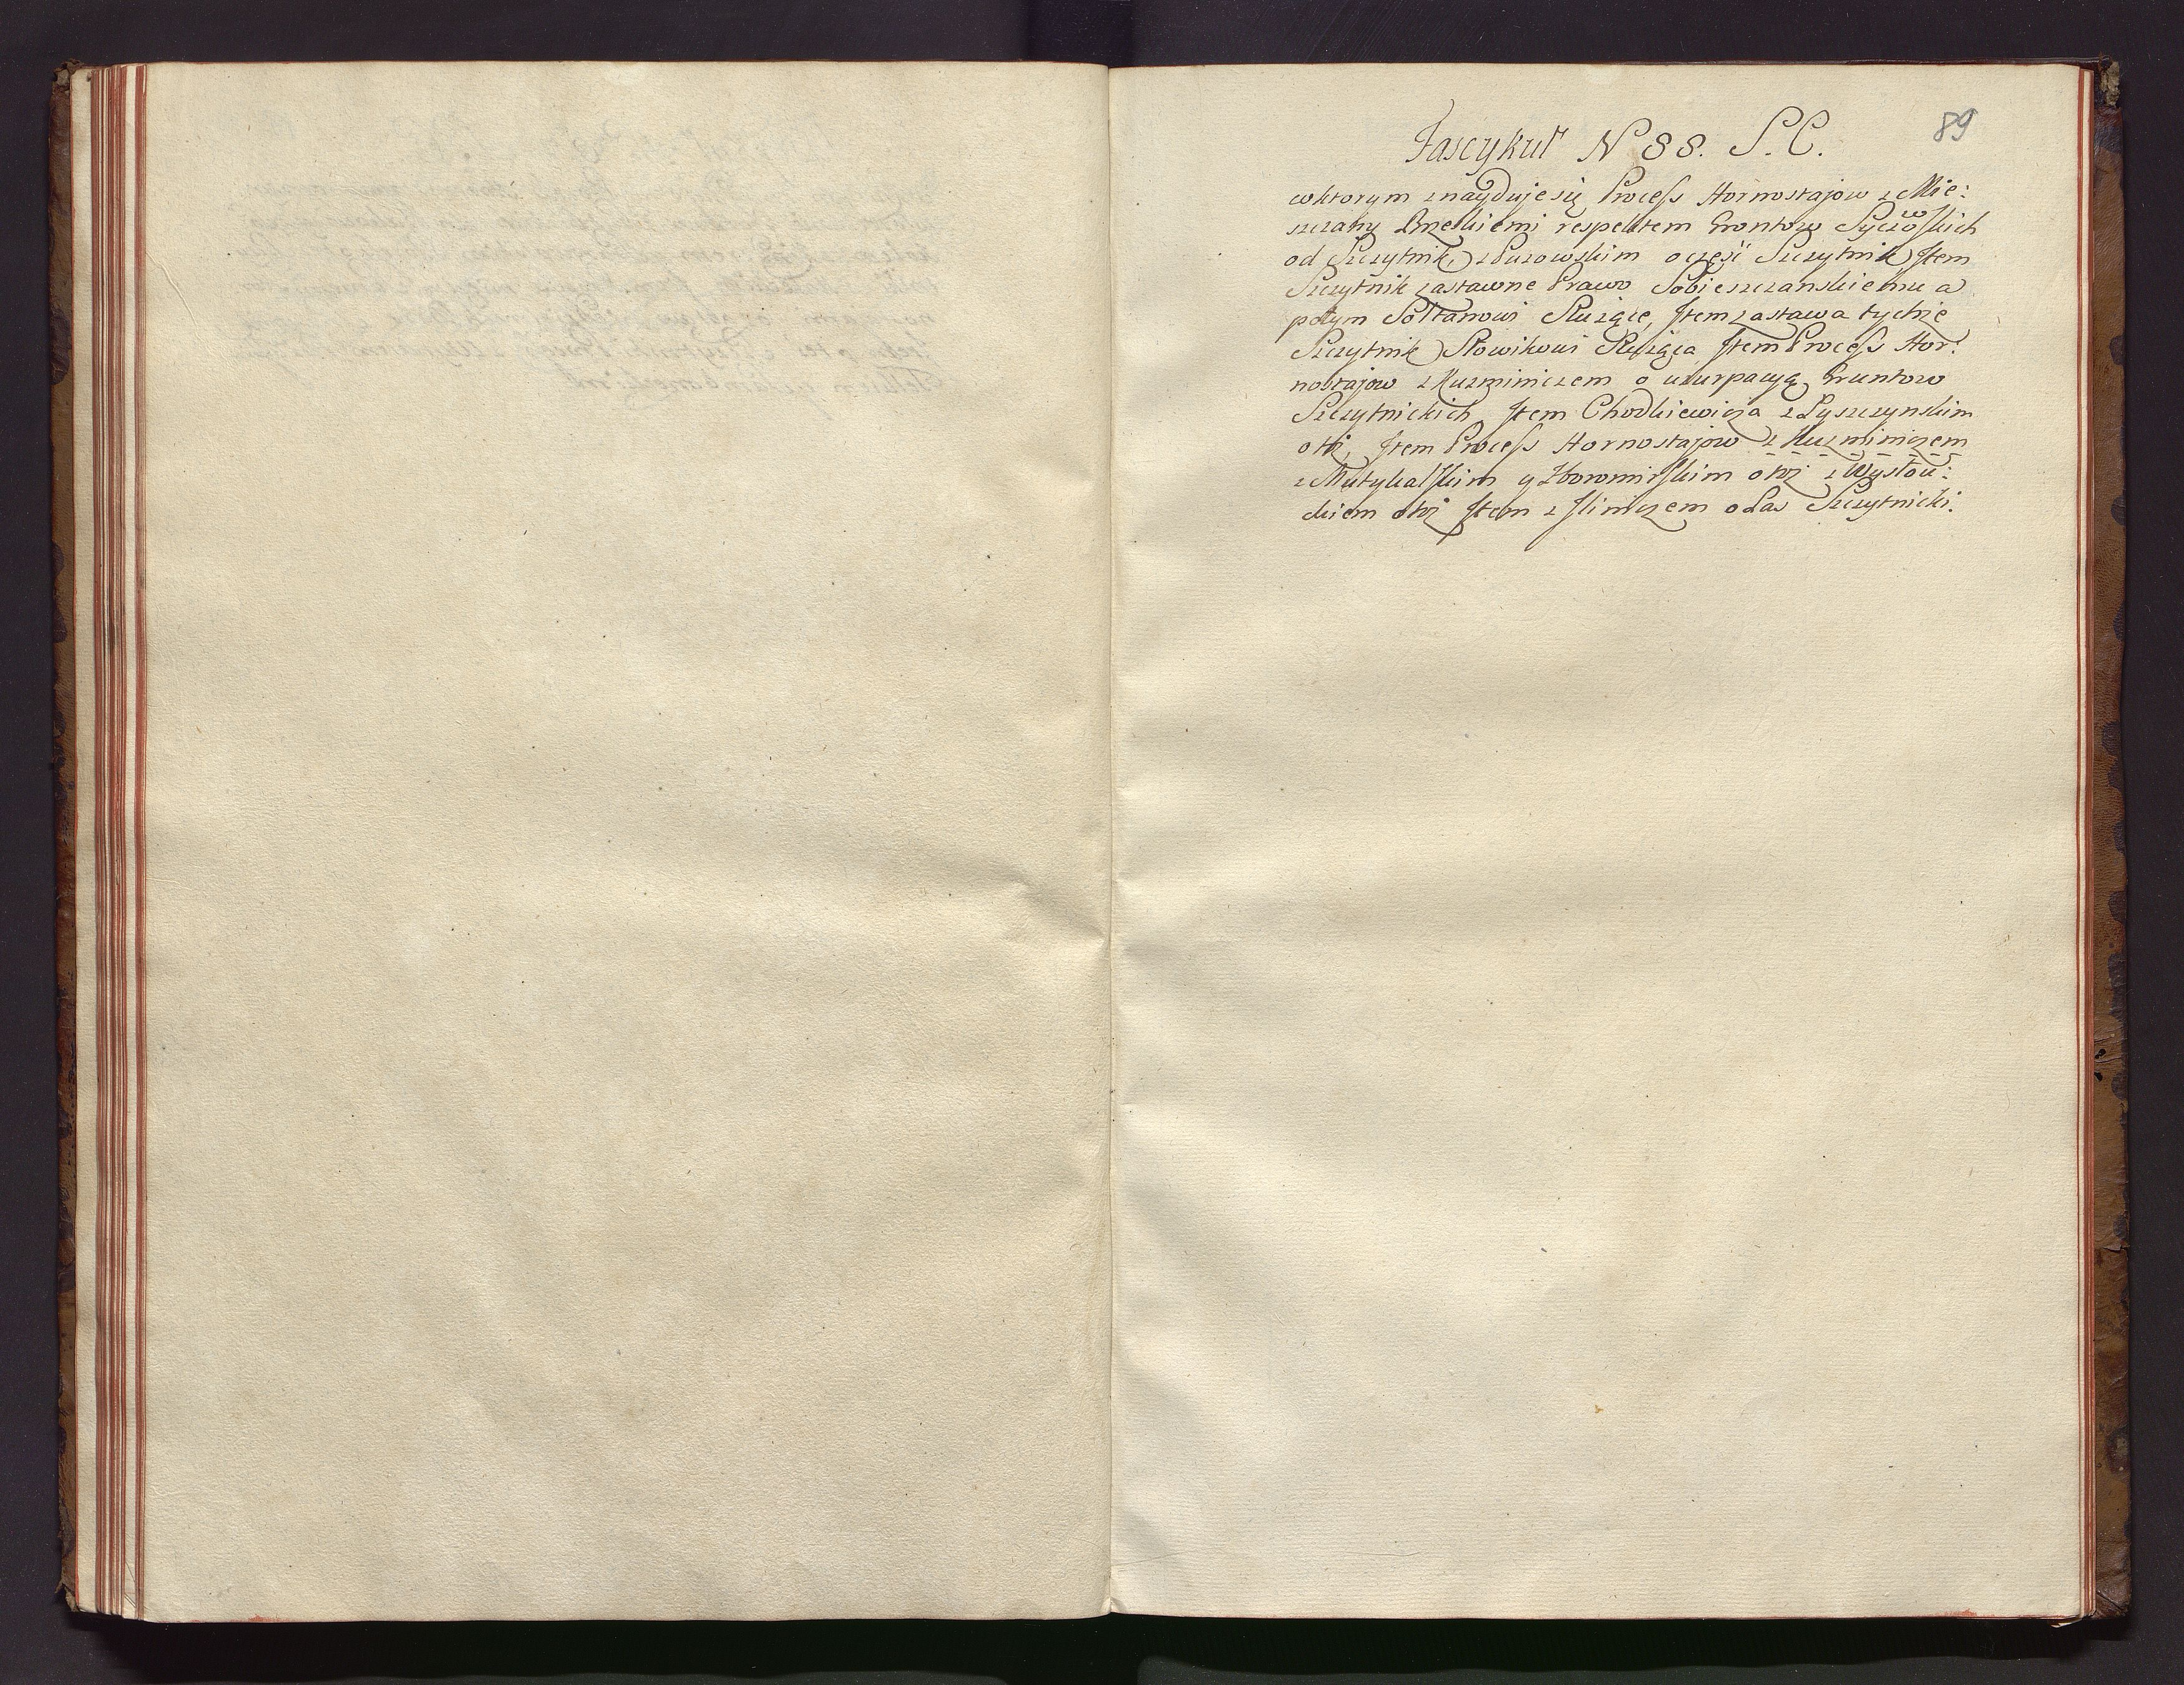 89
Fascykuł N 88. S. C.
wktorym znayduje się Process Hornostajow z Mie:
szczany Brzeskiemi respektem Grontow Syczowskich
od Szczytnik, z Buzowskim o częsć Szczytnik Jtem
Szczytnik zastawne Prawo Sobieszczanskiemu a
potym Sołtanowi Służące, Jtem zastawa tychże
Szczytnik Słowikowi Służąca Jtem Process Hor:
nostajow z Kuzminiczem o uzurpacyą Gruntow
Szczytnickich, Jtem Chodkiewicza z Łyszczynskim
otoż, Jtem Process Hornostajow z Kuzminiczem
z Mutykalskim y Horomirskim otoż z Wysłou:
chiem otoż Jtem z Jliniczem o Las Szczytnicki.